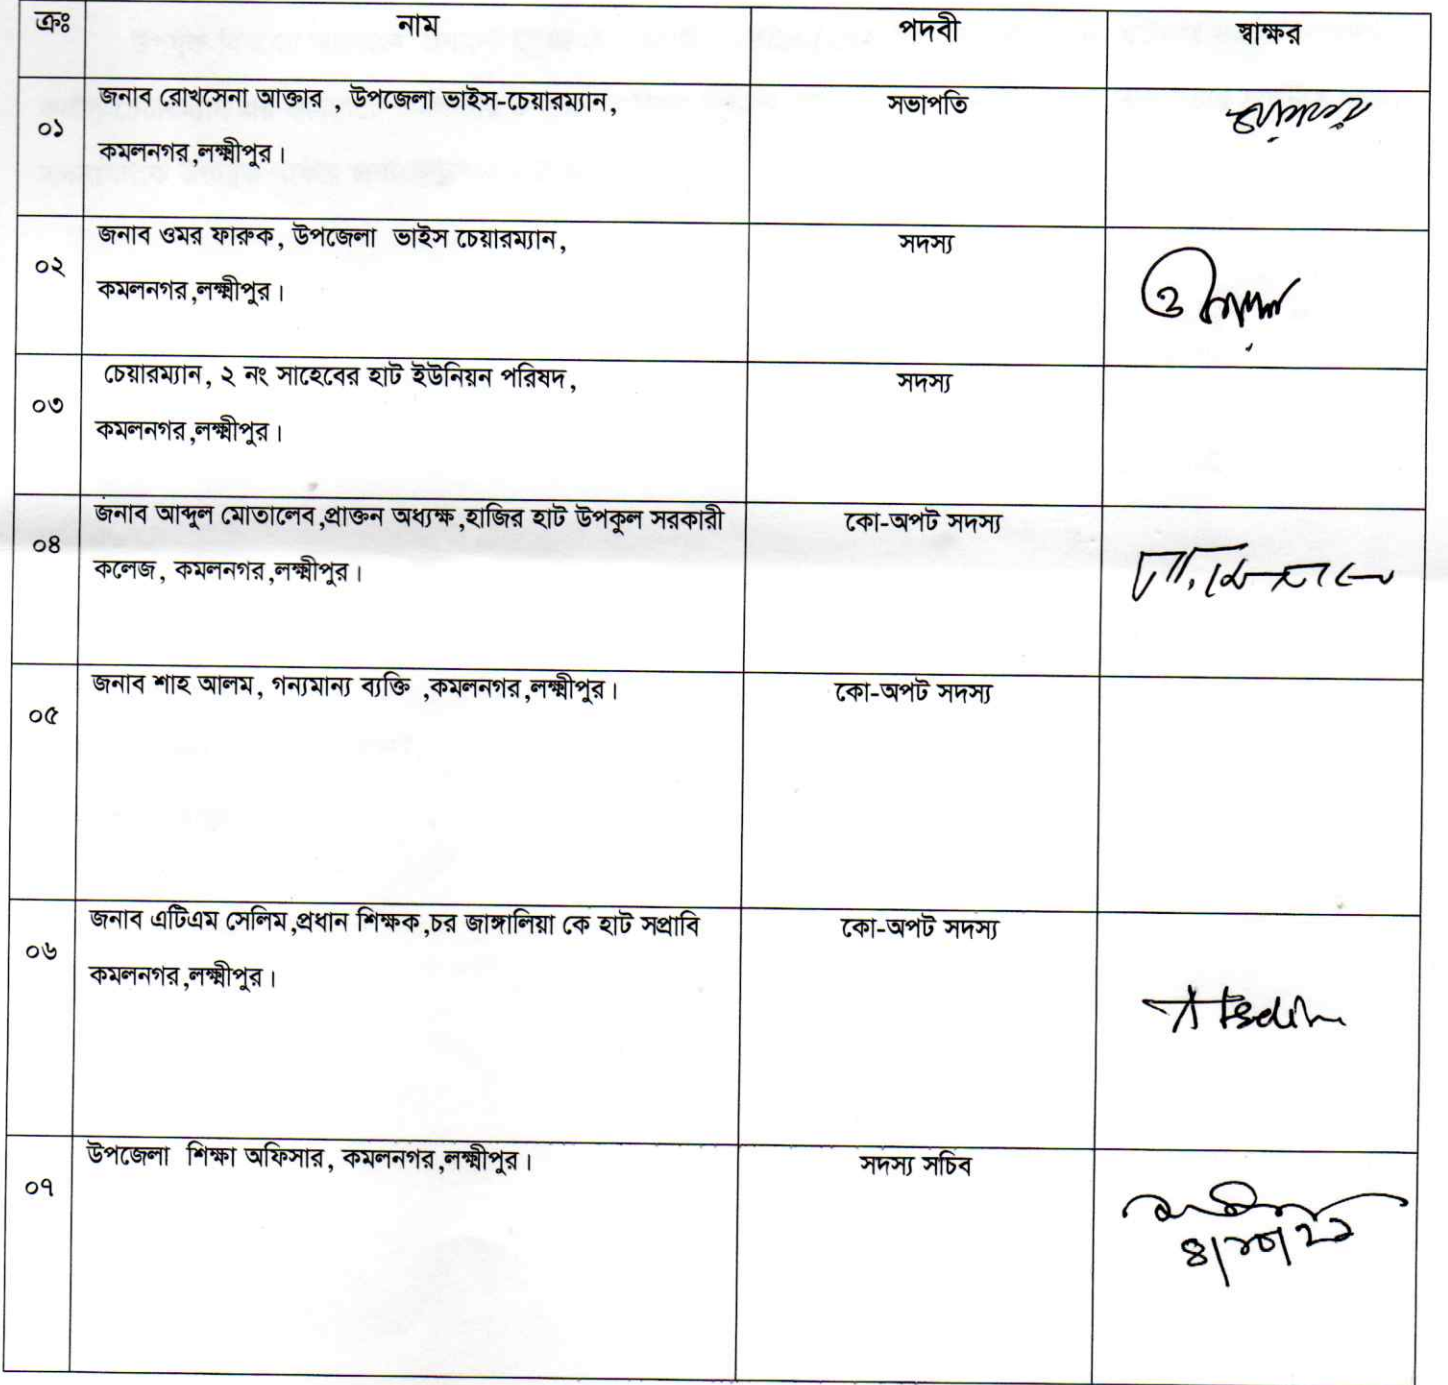 ক্রঃ নাম পদবী স্বাক্ষর
০১ জনাব রোখসেনা আক্তার , উপজেলা ভাইস-চেয়ারম্যান, সভাপতি
কমলনগর,লক্ষ্মীপুর।
০২ জনাব ওমর ফারুক, উপজেলা ভাইস চেয়ারম্যান, সদস্য
কমলনগর,লক্ষ্মীপুর।
০৩ চেয়ারম্যান, ২ নং সাহেবের হাট ইউনিয়ন পরিষদ, সদস্য
কমলনগর,লক্ষ্মীপুর।
০৪ জনাব আব্দুল মোতালেব,প্রাক্তন অধ্যক্ষ,হাজির হাট উপকুল সরকারী কো-অপট সদস্য
কলেজ, কমলনগর,লক্ষ্মীপুর।
০৫ জনাব শাহ আলম, গন্যমান্য ব্যক্তি ,কমলনগর,লক্ষ্মীপুর। কো-অপট সদস্য
০৬ জনাব এটিএম সেলিম,প্রধান শিক্ষক,চর জাঙ্গালিয়া কে হাট সপ্রাবি কো-অপট সদস্য
কমলনগর,লক্ষ্মীপুর।
০৭ উপজেলা শিক্ষা অফিসার, কমলনগর,লক্ষ্মীপুর। সদস্য সচিব